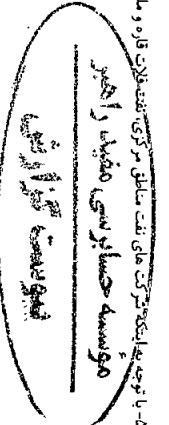 ۵- با توجه به اینکه شرکت های نفت مناطق مرکزی، نفت فلات قاره و ما
موسسه حسابرسی مفید راهبر
پیوست گزارش